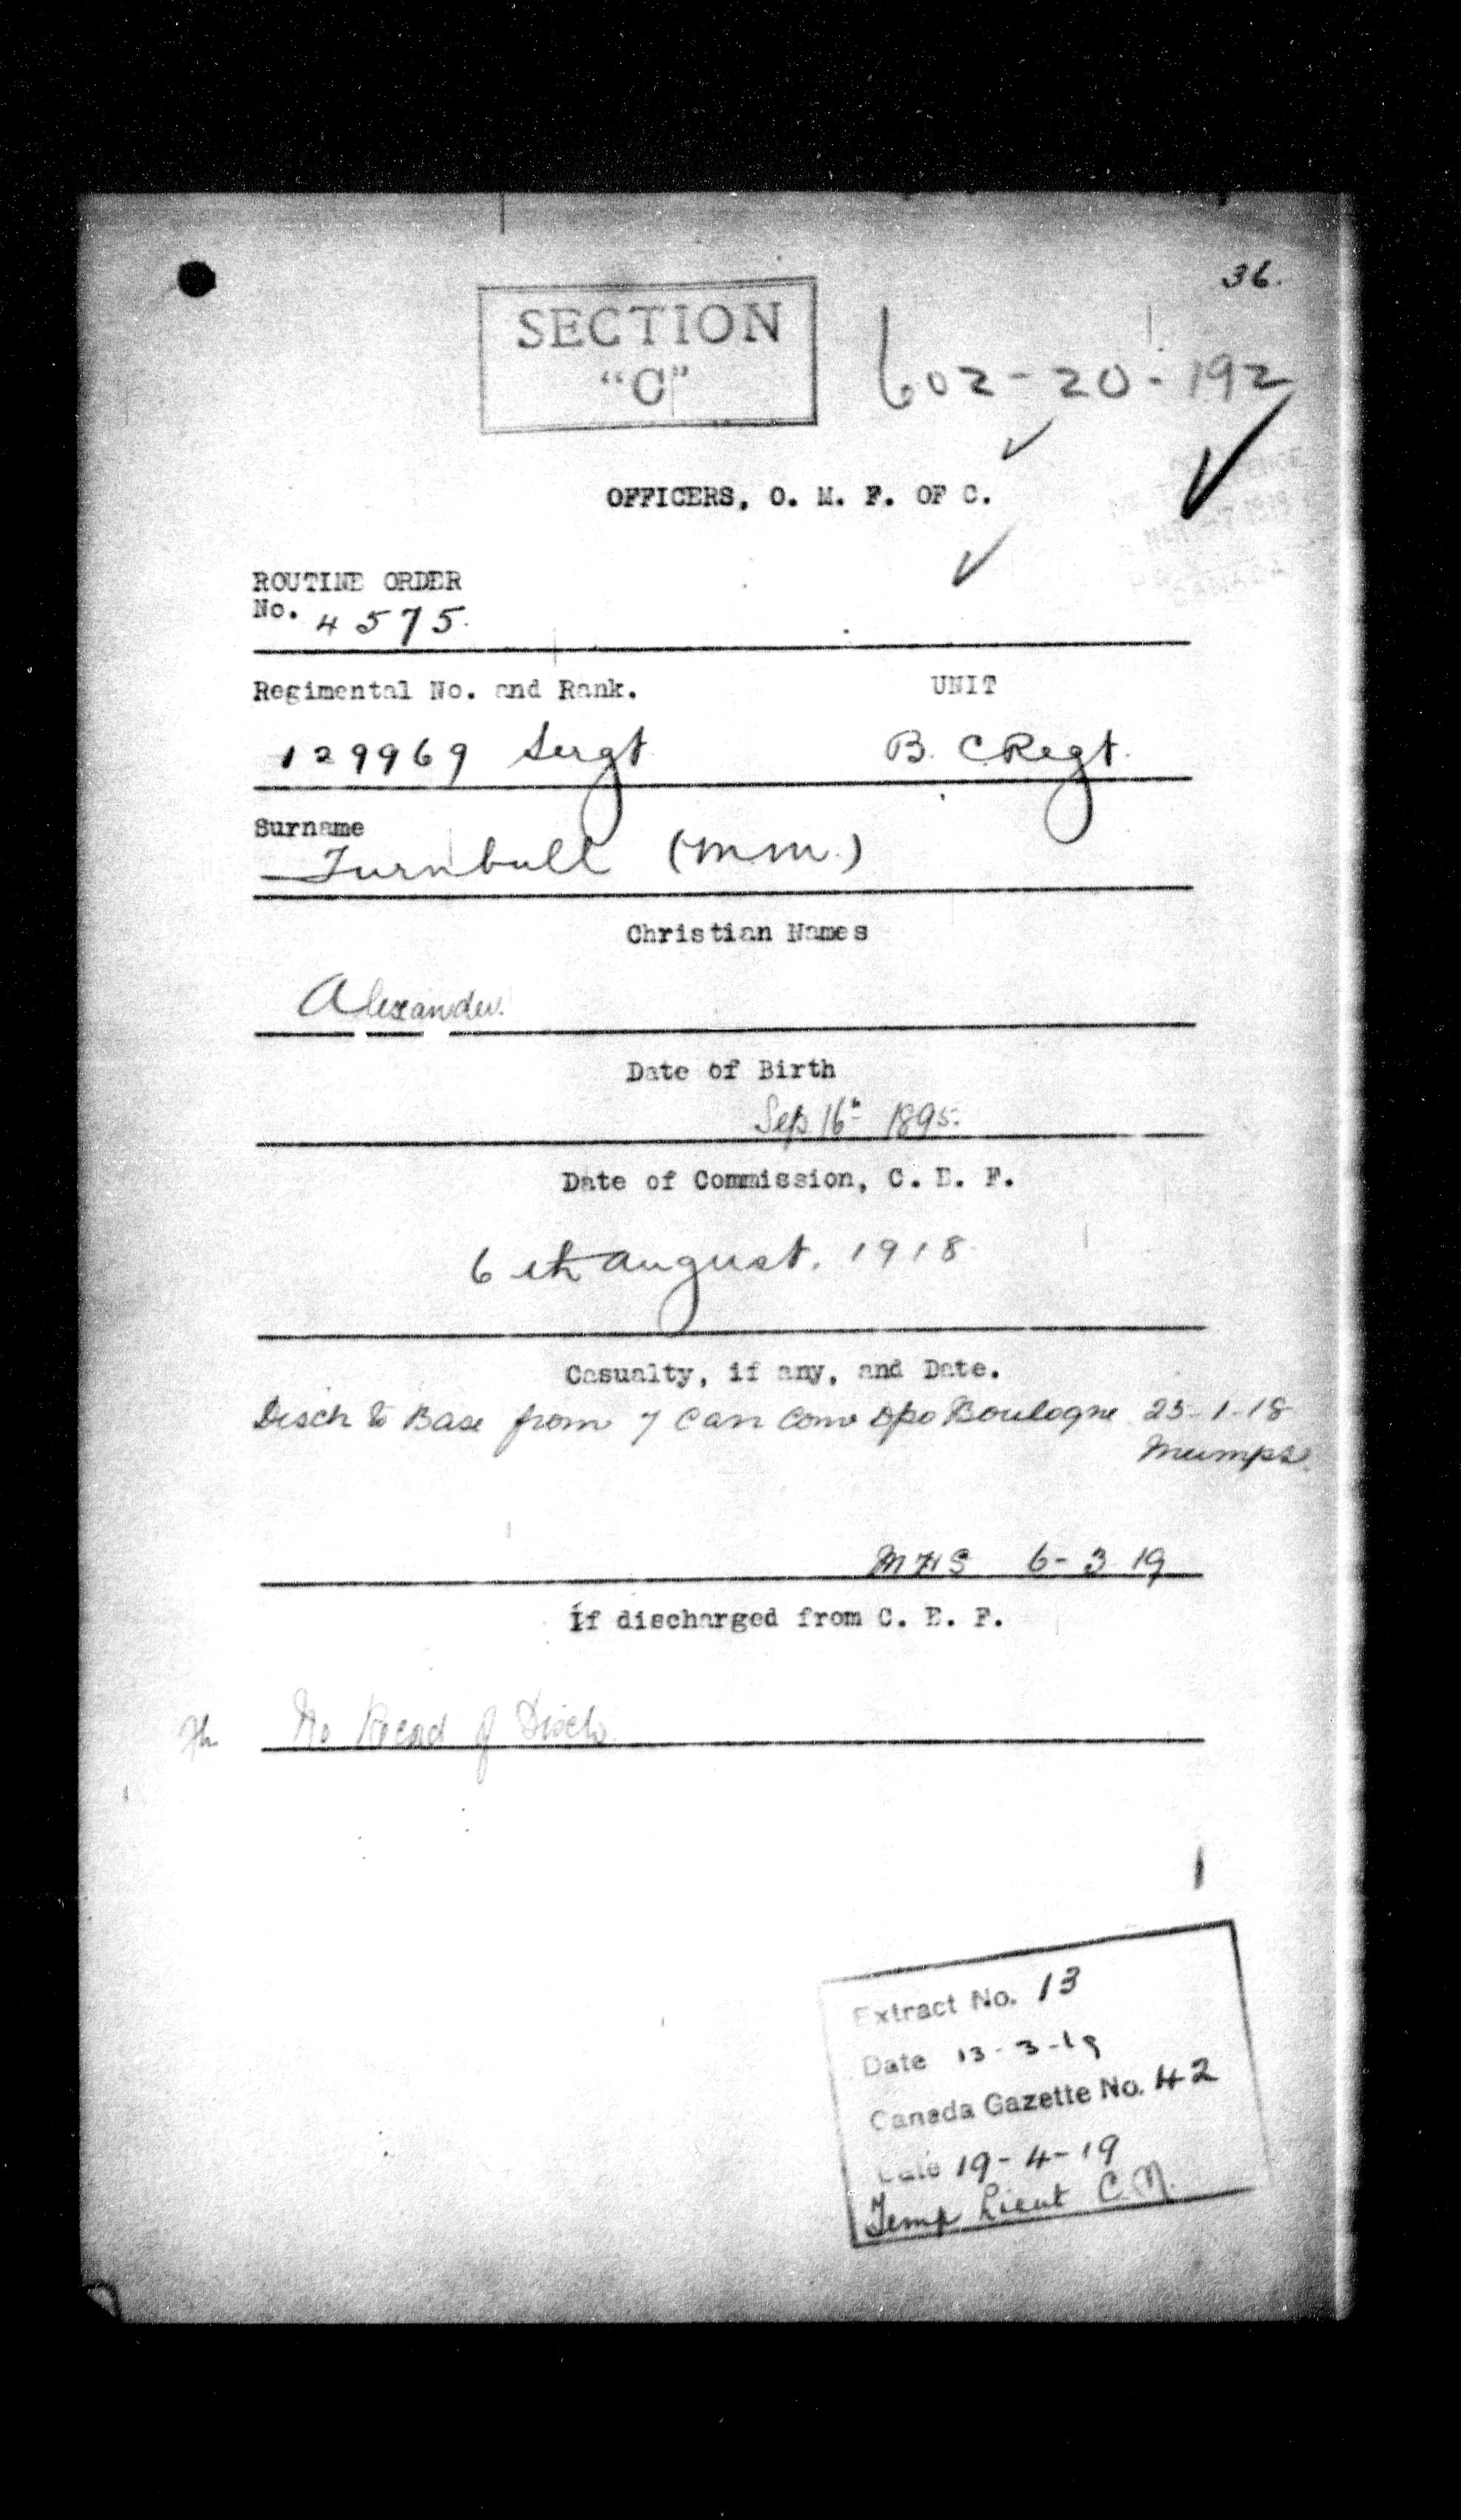 36.
SECTION
"C"
602-20-192
OFFICERS, O. M. F. OF C.
ROUTINE ORDER
No. 4575.
Regimental No. and Rank. UNIT
129969 Sergt B. C Regt.
Surname
Turnbull (M.M.)
Christian Names
Alexander.
Date of Birth
Sep 16th 1895.
Date of Commission, C. E. F.
6th August. 1918
Casualty, if any, and Date.
Disch to Base from 7 Can Conv Dpo Boulogne 25-1-18
Mumps.
6-3 19
If discharged from C. E. F.
No Record of Disch
Extract No. 13
Date 13-3-19
Canada Gazette No. 42
Date 19-4-19
Temp Lieut